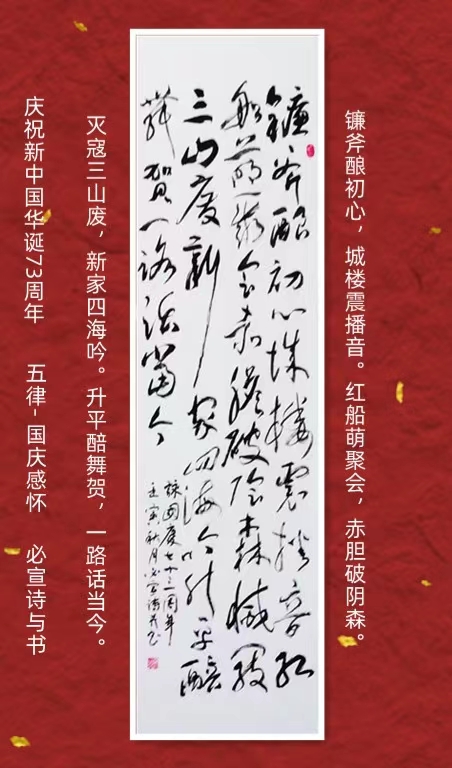 镰斧酿初心，城楼震播音。红船萌聚会，赤胆破阴森。
镰斧酿初心城楼震播音红
船萌聚会赤胆破阴森滅寇
三山废新家四海吟升平醅
舞贺一路话当今
国庆七十三周年
壬寅秋月必宣诗并书
灭寇三山废，新家四海吟。升平醅舞贺，一路话当今。
庆祝新中国华诞73周年 五律-国庆感怀 必宣诗与书